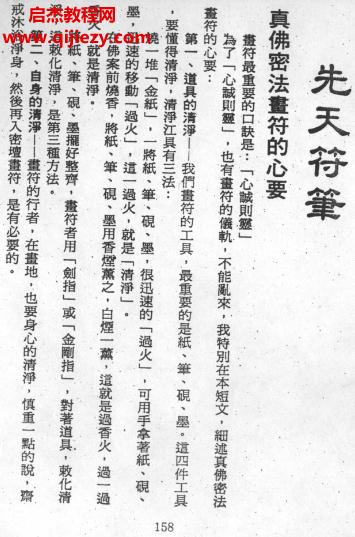 启杰教程网
先天符筆
真佛密法畫符的心要
畫符最重要的口訣是：「心誠則靈」
為了「心誠則靈」，也有畫符的儀軌，不能亂來，我特別在本短文，細述真佛密法
畫符的心要：
第一、道具的清淨——我們畫符的工具，最重要的是紙、筆、硯、墨。這四件工具
，要懂得清淨，清淨江具有三法：
燒一堆「金紙」，將紙、筆、硯、墨，很迅速的「過火」，可用手拿著紙、硯、
墨，迅速的移動「過火」，這一過火，就是「清淨」。
佛案前燒香，將紙、筆、硯、墨用香煙薰之，白煙一薰，這就是過香火，過一過
火，就是清淨。
將紙、筆、硯、墨擺好整齊，畫符者用「劍指」或「金剛指」，對著道具，敕化清
，這敕化清淨，是第三種方法。
第二、自身的清淨——畫符的行者，在畫地，也要身心的清淨，慎重一點的說，齋
戒沐浴淨身，然後再入密壇畫符，是有必要的。
158